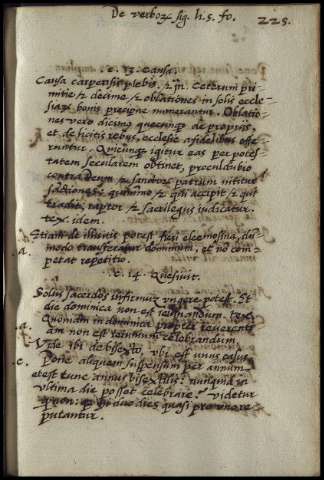 De verborz sig. h. s. fo. 225.
c. 13. Causa.
Causa carpensis plebis, &c in. Ceterum pri
mitie & decime & oblationes in solis eccle
siarz bonis precipue numerantur. Oblatio
nes vero dicimus quecunq de propriis,
et de licitis rebus, ecclesie a fidelibus offe
runtur. Quicunq igitur eas per potes
tatem secularem obtinet, procul dubio
contra deum & sanctorz patrum
& qui accipit & qui
tradit, raptor & sacrilegus iudicatur.
tex. idem.
Etiam de illicitis potest fieri eleemosina, du
.a. modo transferatur dominium, et no com
petat repetitio.
c. 14. Quesivit.
Solus sacerdos infirmum ungere potest. Et
die dominica non est ieiunandum. tex.
.a. Quoniam in dominica propter reverenti
am non est ieiunium celebrandum.
Vide ibi de bisexto, ubi est unus casus
c. Pone aliquem suspensum per annum,
et est tunc annus bisextilis: nunquid in
ultima die posset celebrare? videtur
quod non: quia hi duo dies quasi pro unore
putantur.